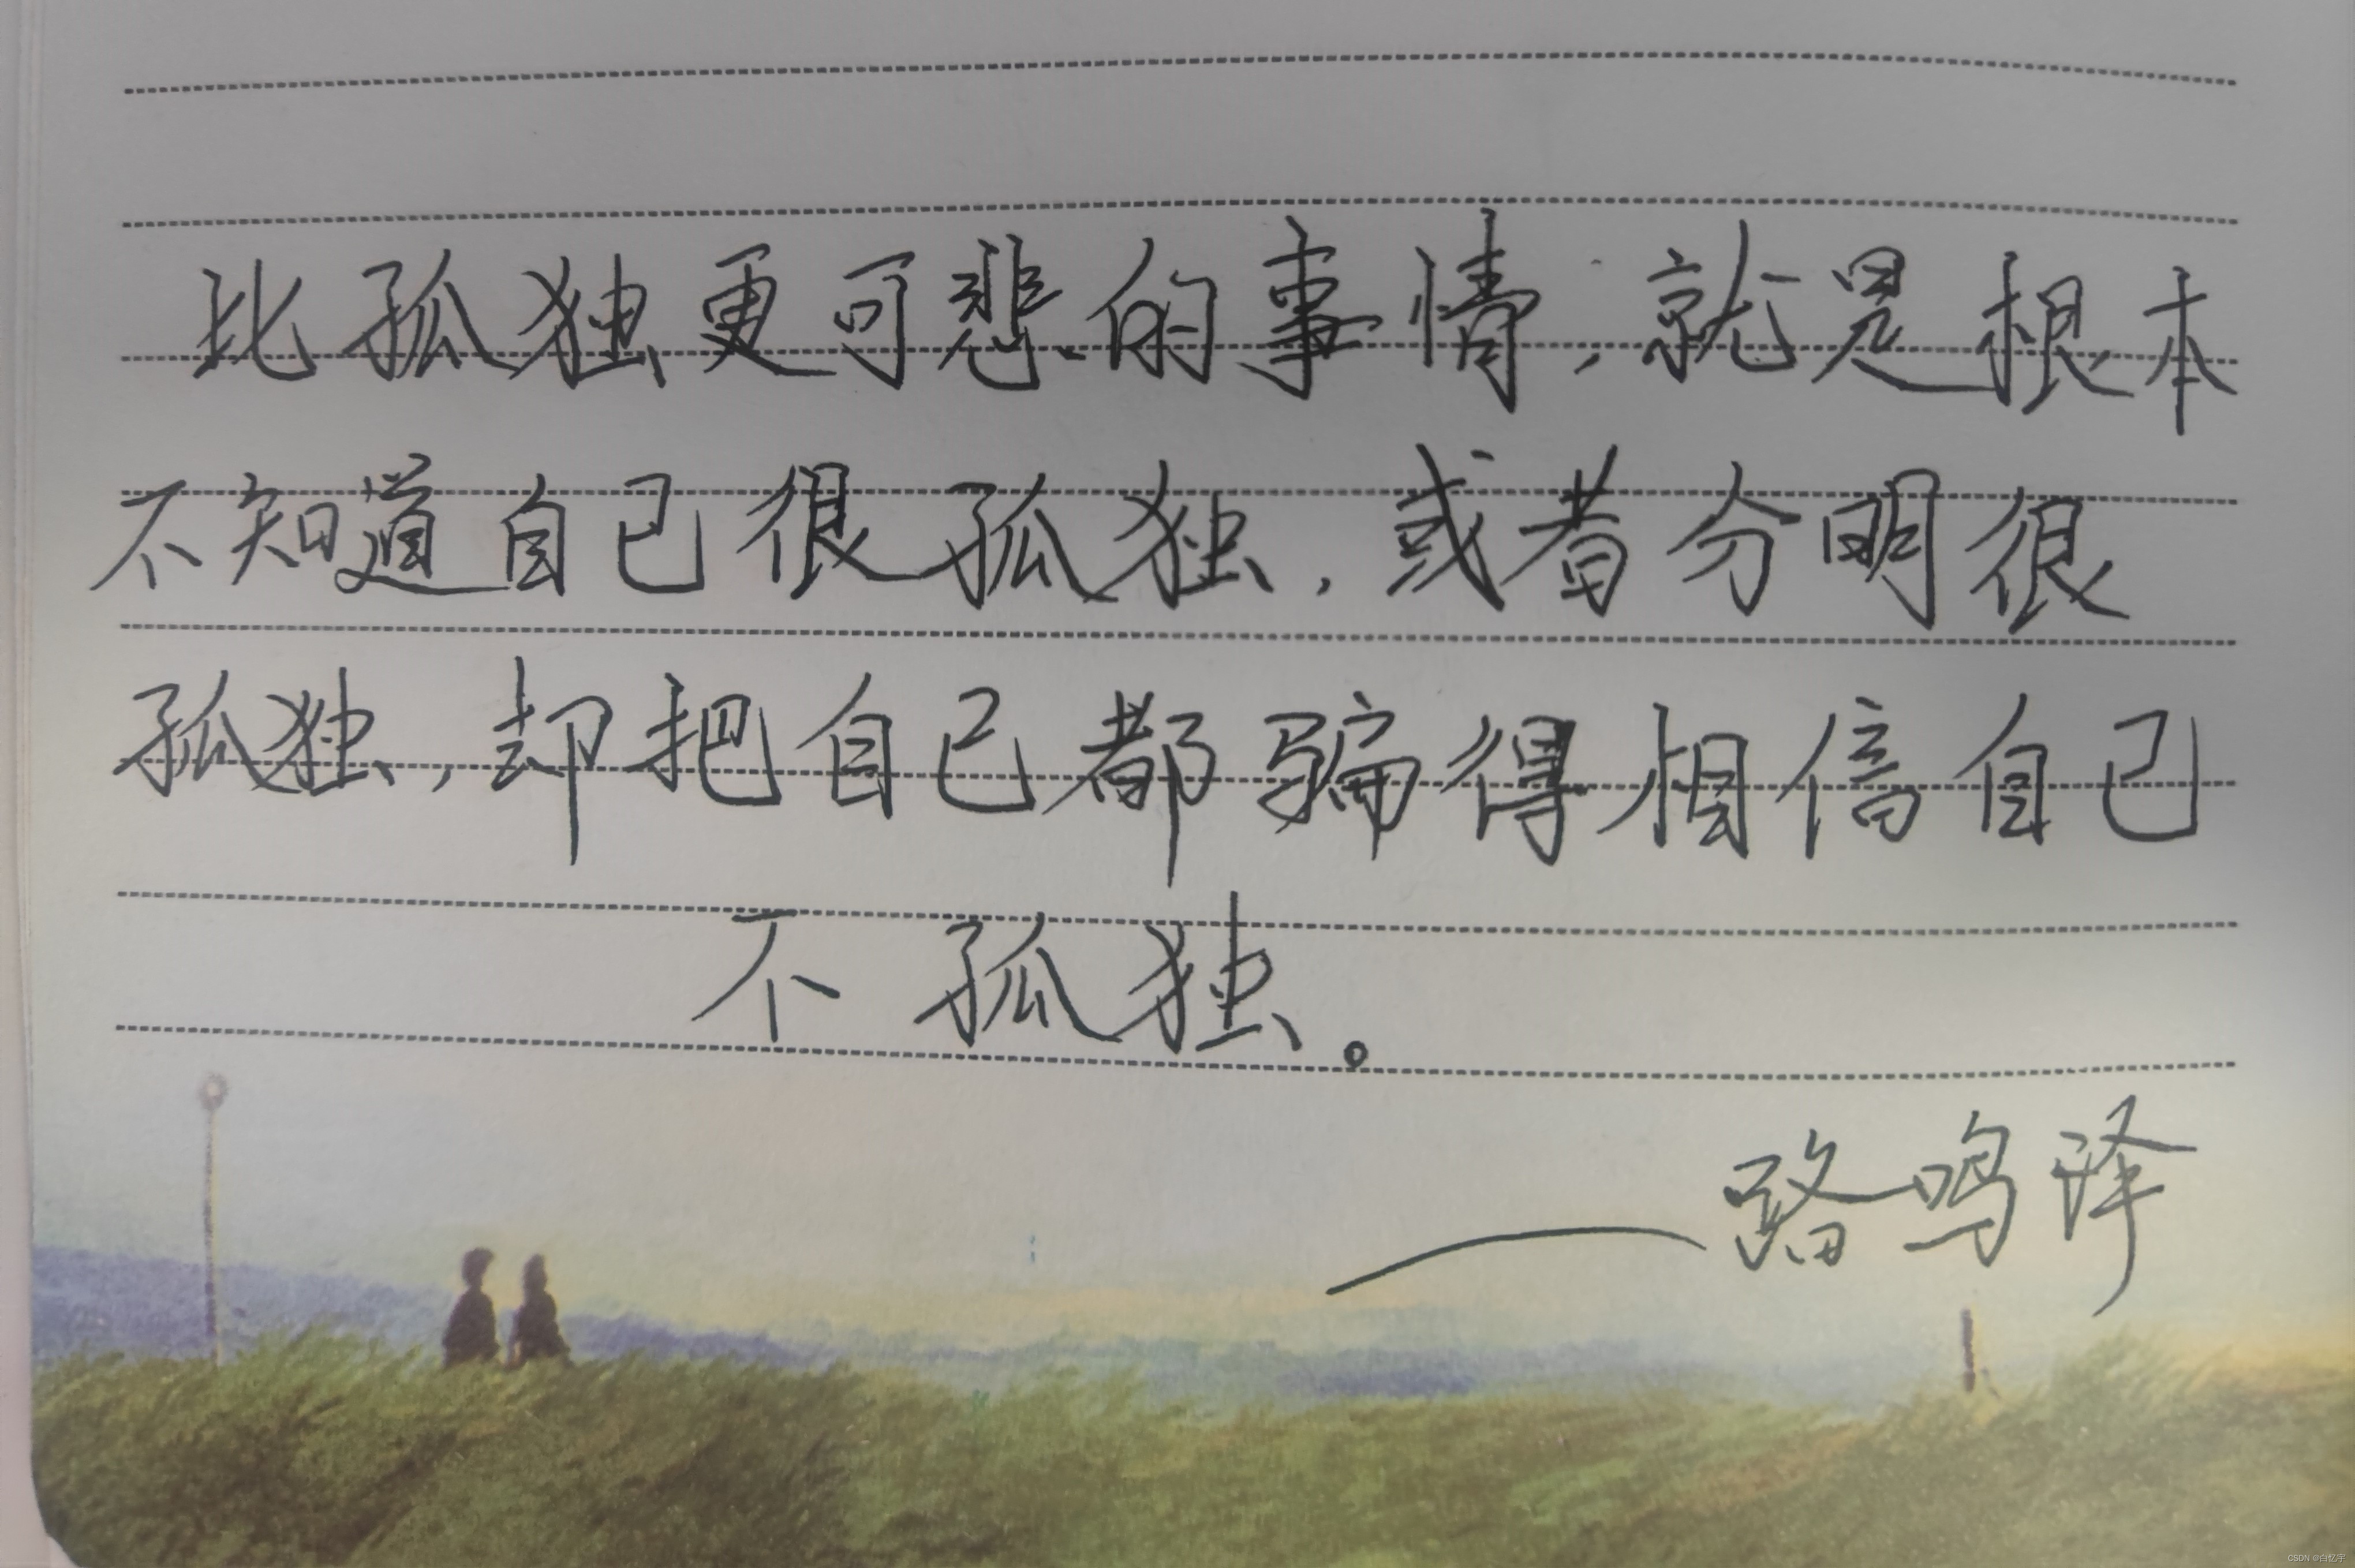 比孤独更可悲的事情，就是根本
不知道自己很孤独，或者分明很
孤独，却把自己都骗得相信自己
不孤独。
——路鸣泽
CSDN @白忆宇